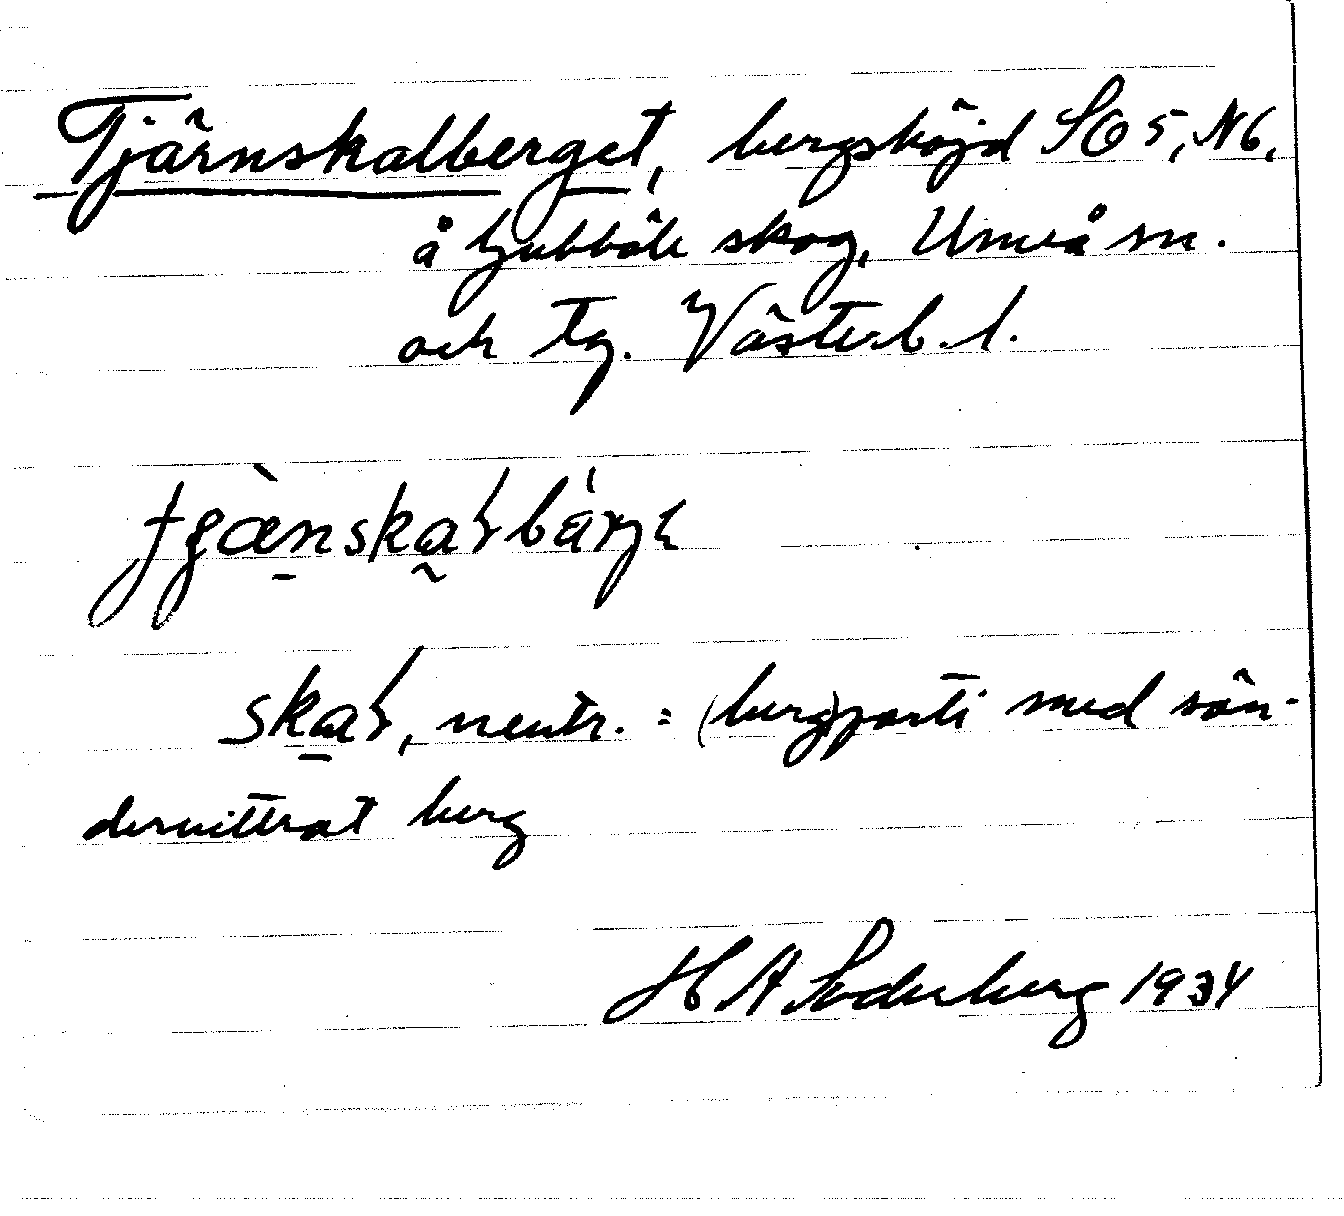 Tjärnskalberget, bergshöjd SO 5, N6,
å Ljubböle skog, Umeå sn.
och tg. Västerb. l.
skaɬ, neutr. = (berg)parti med sön-
dervittrat berg
H A Söderberg 1934